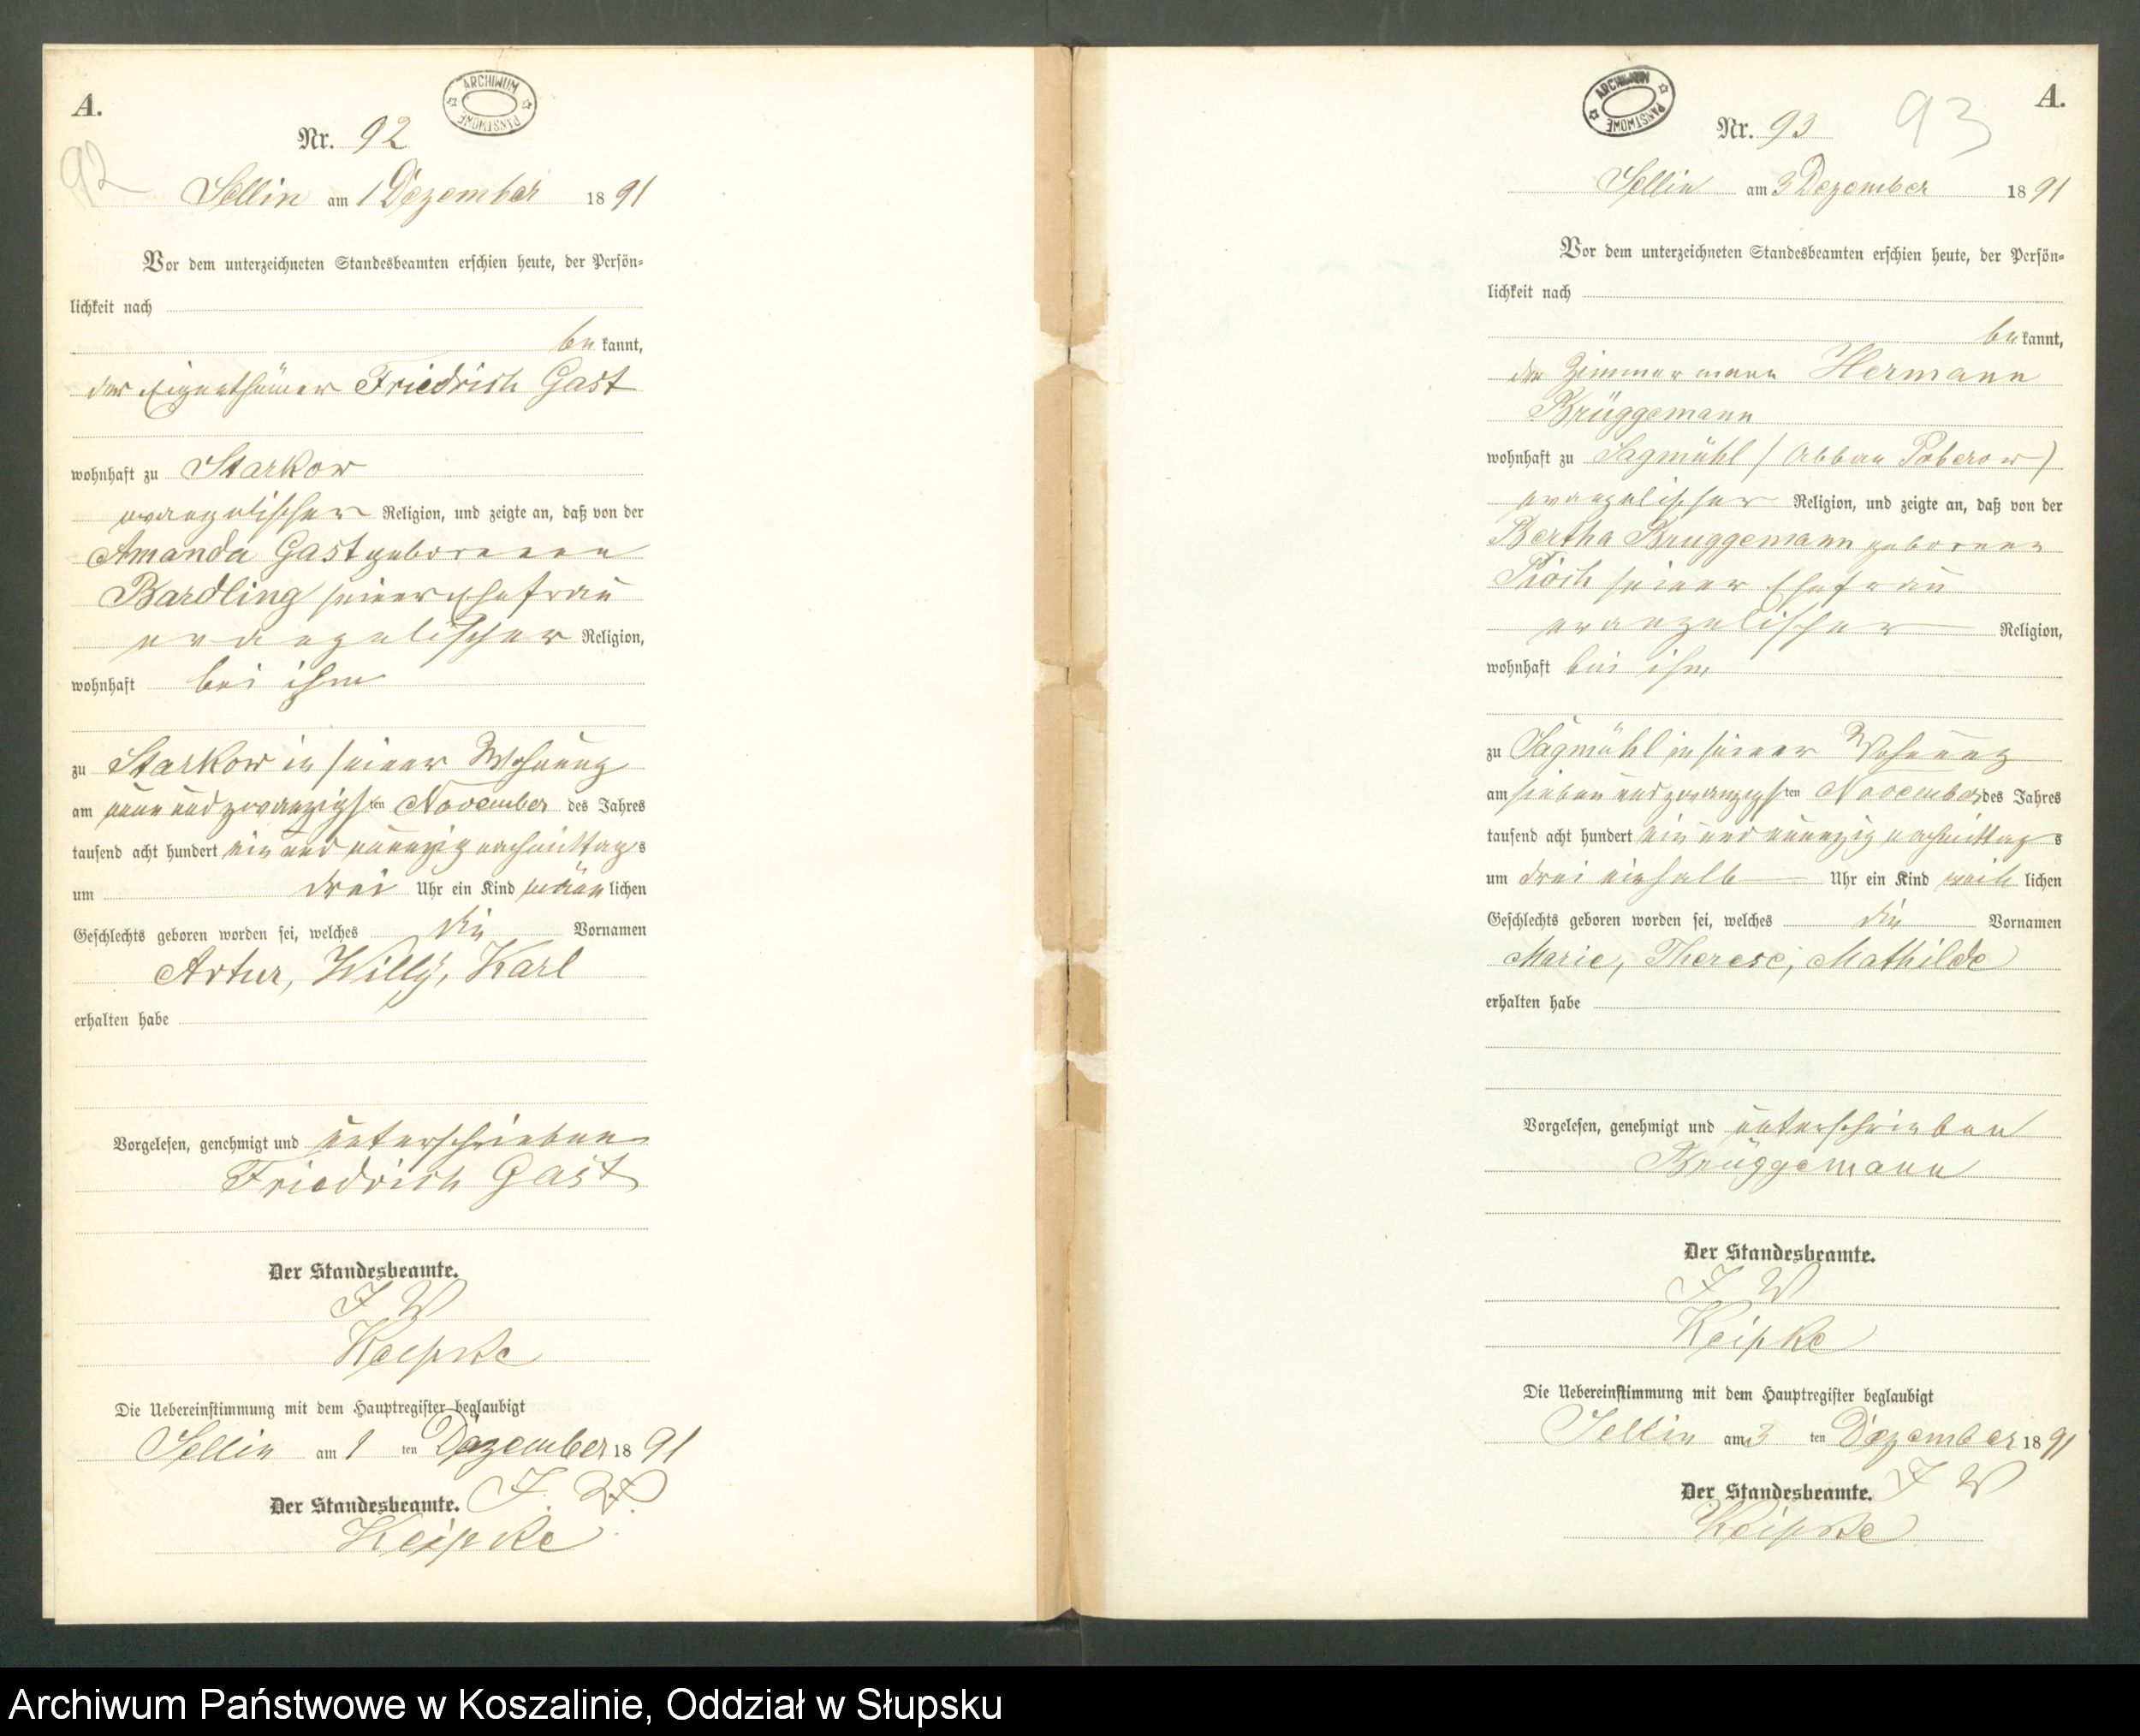 A.
ARCHIWUM PAŃSTWOWE
Nr. 92
92
Sellin am 1 Dezember 1891
Vor dem unterzeichneten Standesbeamten erschien heute, der Persön-
lichkeit nach
be kannt,
der Eigenthümer Friedrich Gast
wohnhaft zu Starkow
evangelischer Religion, und zeigte an, daß von der
Amanda Gast geborenen
Bardling seiner Ehefrau
evangelischer Religion,
wohnhaft bei ihm
zu Starkow in seiner Wohnung
am neun und zwanzigsten November des Jahres
tausend acht hundert ein und neunzig nachmittags
um drei Uhr ein Kind männlichen
Geschlechts geboren worden sei, welches die Vornamen
Artur, Willy, Karl
erhalten habe
Vorgelesen, genehmigt und unterschrieben
Friedrich Gast
Der Standesbeamte.
J W
Keipke
Die Uebereinstimmung mit dem Hauptregister beglaubigt
Sellin am 1 ten Dezember 1891
Der Standesbeamte. J. V.
Keipke
A.
ARCHIWUM PAŃSTWOWE
Nr. 93
93
Sellin am 3 Dezember 1891
Vor dem unterzeichneten Standesbeamten erschien heute, der Persön-
lichkeit nach
be kannt,
der Zimmermann Hermann
Brüggemann
wohnhaft zu Sagmühl (Abbau Poberow)
evangelischer Religion, und zeigte an, daß von der
Bertha Bruggemann geborenen
Pioch seiner Ehefrau
evangelischer Religion,
wohnhaft bei ihm
zu Sagmühl in seiner Wohnung
am sieben und zwanzigsten November des Jahres
tausend acht hundert ein und neunzig nachmittags
um drei einhalb Uhr ein Kind weiblichen
Geschlechts geboren worden sei, welches die Vornamen
Marie, Therese, Mathilde
erhalten habe
Vorgelesen, genehmigt und unterschrieben
Brüggemann
Der Standesbeamte.
J W
Keipke
Die Uebereinstimmung mit dem Hauptregister beglaubigt
Sellin am 3 ten Dezember 1891
Der Standesbeamte. J W
Keipke
Archiwum Państwowe w Koszalinie, Oddział w Słupsku